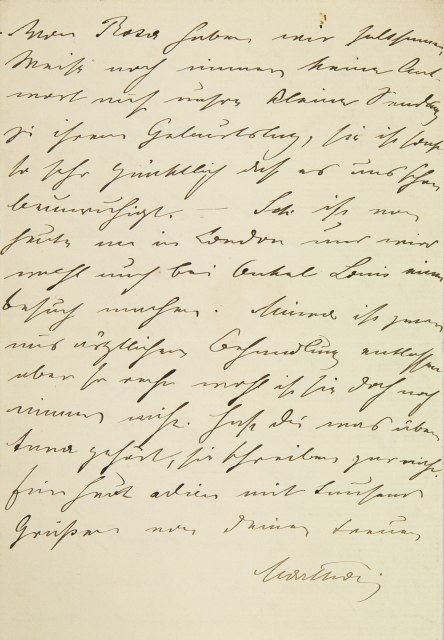 Von Rosa haben wir seltsamer
Weise noch immer keine Ant-
wort auf unsre kleine Sendung
zu ihrem Geburtstag, sie ist sonst
so sehr pünktlich daß es uns schon
beunruhigt. — ist von
heute an in London und wird
wohl auch bei Onkel Louis einen
Besuch machen. Minna ist zwar
aus ärztlicher Behandlung entlassen
aber so recht wohl ist sie doch noch
immer nicht. Hast du was über
Anna gehört, sie schreiben gar nicht.
Für heut adieu mit tausend
Grüßen von deiner treuen